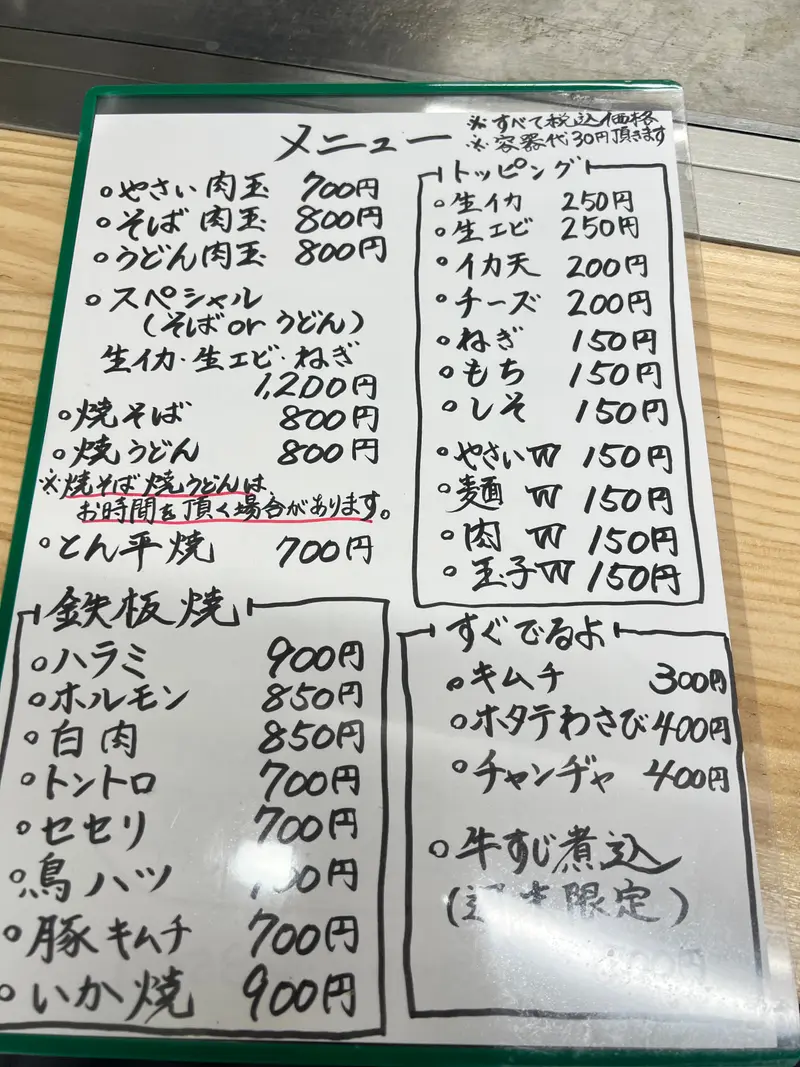 メニュー
※すべて税込価格
※容器代30円頂きます
○やさい肉玉 700円
○そば肉玉 800円
○うどん肉玉 800円
○スペシャル
(そばorうどん)
生イカ・生エビ・ねぎ
1,200円
○焼そば 800円
○焼うどん 800円
※焼そば焼うどんは
お時間を頂く場合があります。
○とん平焼 700円
鉄板焼
○ハラミ 900円
○ホルモン 850円
○白肉 850円
○トントロ 700円
○セセリ 700円
○鳥ハツ
○豚キムチ 700円
○いか焼 900円
トッピング
○生イカ 250円
○生エビ 250円
○イカ天 200円
○チーズ 200円
○ねぎ 150円
○もち 150円
○しそ 150円
○やさいW 150円
○麺W 150円
○肉W 150円
○玉子W 150円
すぐでるよ
○キムチ 300円
○ホタテわさび 400円
○チャンヂャ 400円
○牛すじ煮込
(週末限定)